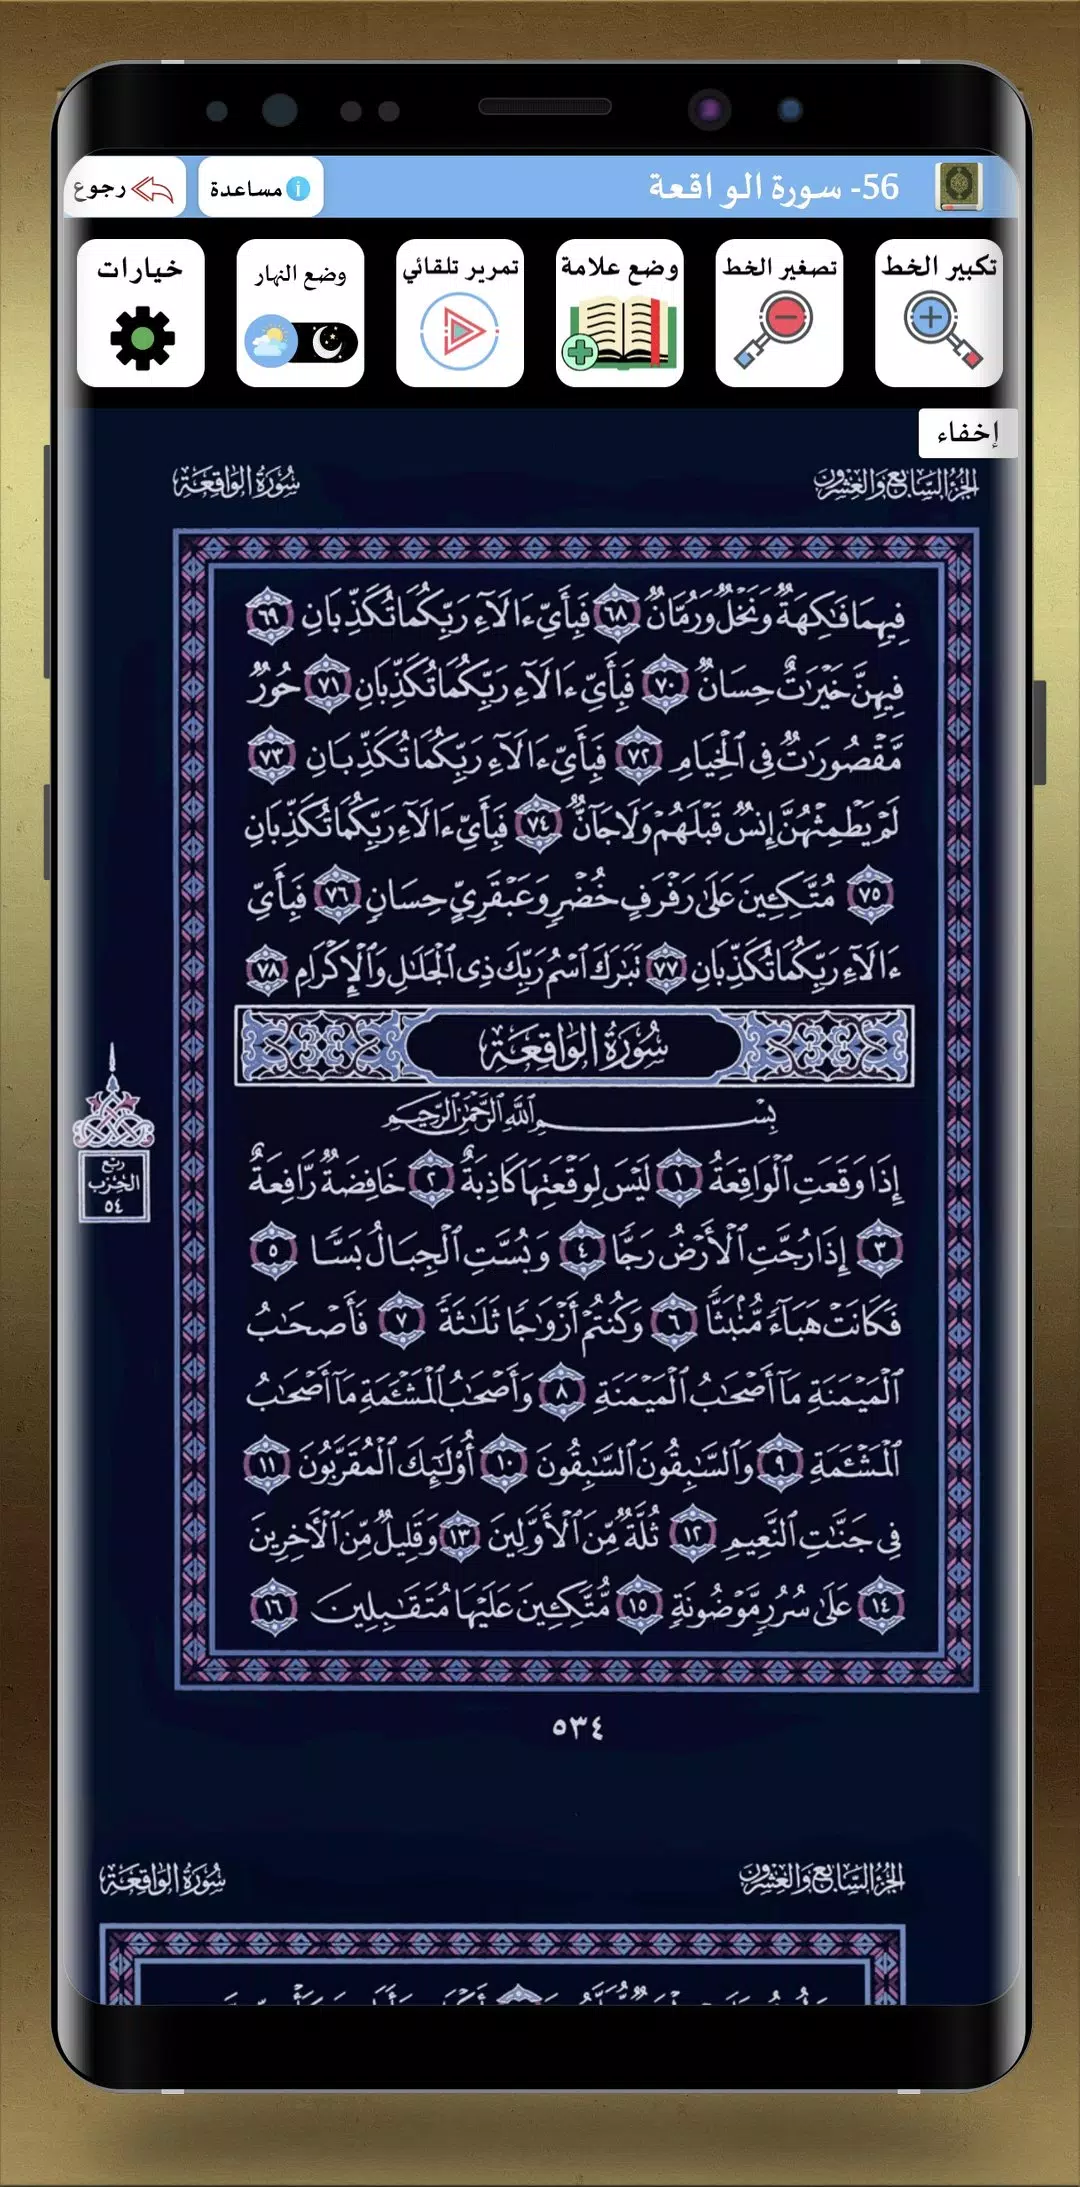 56- سورة الواقعة
مساعدة
رجوع
تكبير الخط
تصغير الخط
وضع علامة
تمرير تلقائي
وضع النهار
خيارات
إخفاء
الجزء السابع والعشرون
سورة الواقعة
فِيهِمَا فَٰكِهَةٌ وَنَخْلٌ وَرُمَّانٌ ٦٨ فَبِأَيِّ ءَالَآءِ رَبِّكُمَا تُكَذِّبَانِ ٦٩
فِيهِنَّ خَيْرَٰتٌ حِسَانٌ ٧٠ فَبِأَيِّ ءَالَآءِ رَبِّكُمَا تُكَذِّبَانِ ٧١ حُورٌ
مَّقْصُورَٰتٌ فِي ٱلْخِيَامِ ٧٢ فَبِأَيِّ ءَالَآءِ رَبِّكُمَا تُكَذِّبَانِ ٧٣
لَمْ يَطْمِثْهُنَّ إِنسٌ قَبْلَهُمْ وَلَا جَآنٌّ ٧٤ فَبِأَيِّ ءَالَآءِ رَبِّكُمَا تُكَذِّبَانِ
٧٥ مُتَّكِـِٔينَ عَلَىٰ رَفْرَفٍ خُضْرٍ وَعَبْقَرِيٍّ حِسَانٍ ٧٦ فَبِأَيِّ
ءَالَآءِ رَبِّكُمَا تُكَذِّبَانِ ٧٧ تَبَٰرَكَ ٱسْمُ رَبِّكَ ذِى ٱلْجَلَٰلِ وَٱلْإِكْرَامِ ٧٨
سُورَةُ الوَاقِعَة
بِسْمِ ٱللَّهِ ٱلرَّحْمَٰنِ ٱلرَّحِيمِ
إِذَا وَقَعَتِ ٱلْوَاقِعَةُ ١ لَيْسَ لِوَقْعَتِهَا كَاذِبَةٌ ٢ خَافِضَةٌ رَّافِعَةٌ
٣ إِذَا رُجَّتِ ٱلْأَرْضُ رَجًّا ٤ وَبُسَّتِ ٱلْجِبَالُ بَسًّا ٥
فَكَانَتْ هَبَآءً مُّنۢبَثًّا ٦ وَكُنتُمْ أَزْوَٰجًا ثَلَٰثَةً ٧ فَأَصْحَٰبُ
ٱلْمَيْمَنَةِ مَآ أَصْحَٰبُ ٱلْمَيْمَنَةِ ٨ وَأَصْحَٰبُ ٱلْمَشْـَٔمَةِ مَآ أَصْحَٰبُ
ٱلْمَشْـَٔمَةِ ٩ وَٱلسَّٰبِقُونَ ٱلسَّٰبِقُونَ ١٠ أُو۟لَٰٓئِكَ ٱلْمُقَرَّبُونَ ١١
فِى جَنَّٰتِ ٱلنَّعِيمِ ١٢ ثُلَّةٌ مِّنَ ٱلْأَوَّلِينَ ١٣ وَقَلِيلٌ مِّنَ ٱلْأَخِرِينَ
١٤ عَلَىٰ سُرُرٍ مَّوْضُونَةٍ ١٥ مُّتَّكِـِٔينَ عَلَيْهَا مُتَقَٰبِلِينَ ١٦
ربع
الحزب
٥٤
٥٣٤
الجزء السابع والعشرون
سورة الواقعة